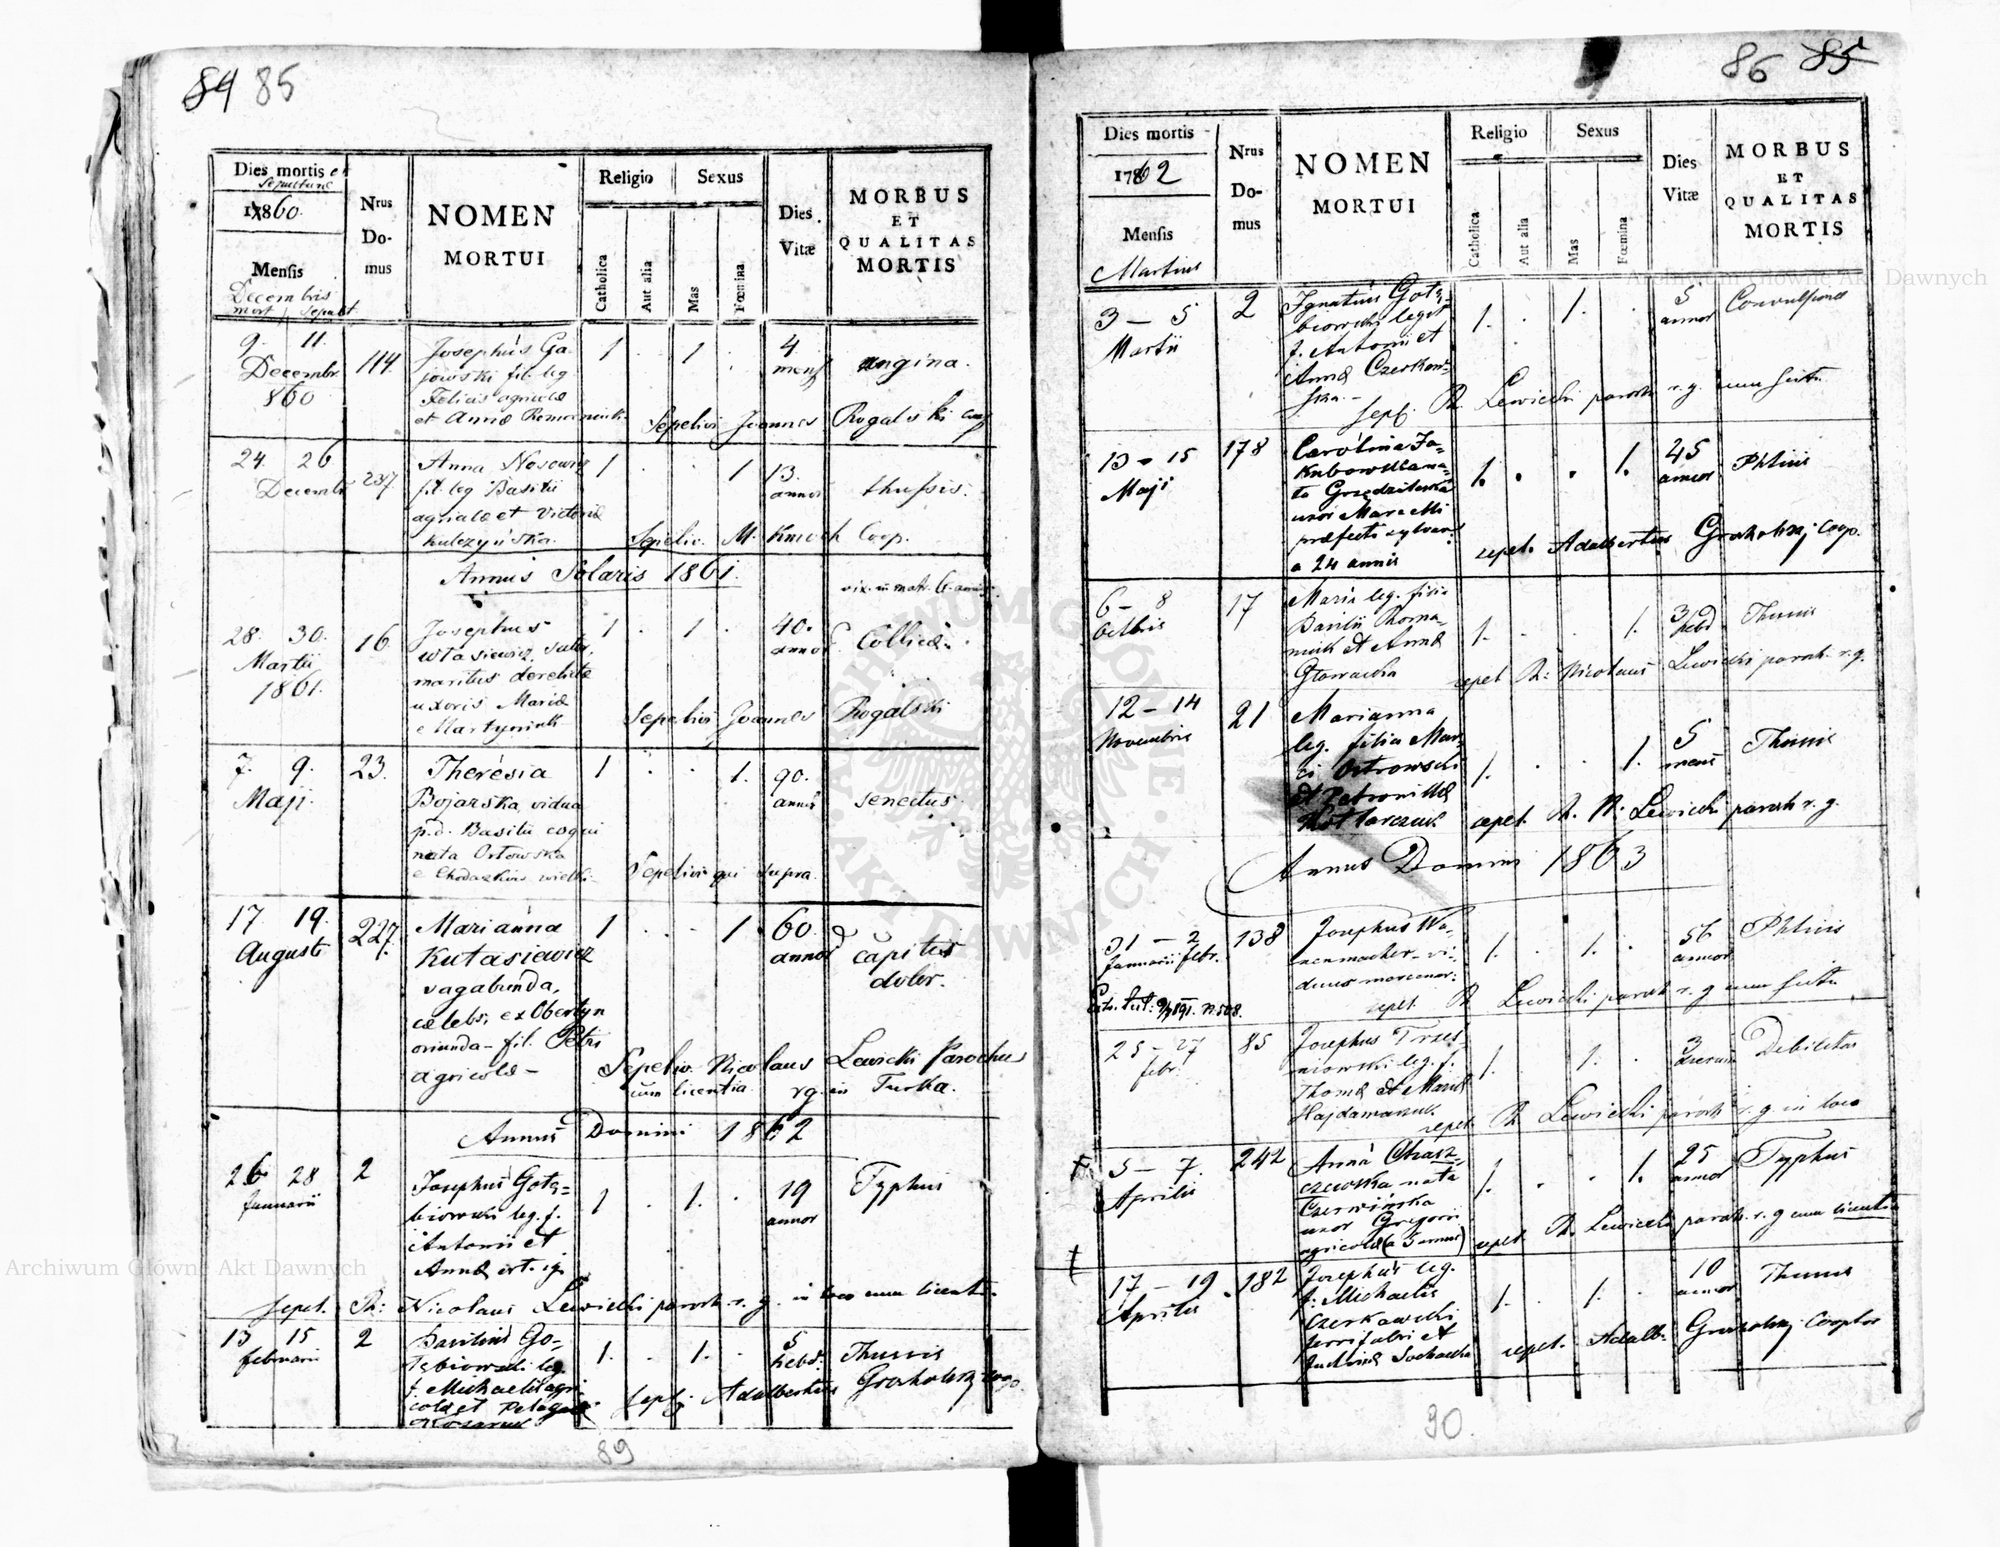 84 85
Dies mortis et
Sepulturæ
1860.
Mensis
Decembris
mort / Sepult
Nrus
Do-
mus
NOMEN
MORTUI
Religio
Catholica
Aut alia
Sexus
Mas
Fœmina
Dies
Vitæ
MORBUS
ET
QUALITAS
MORTIS
9. 11.
Decembr
860
114.
Josephus Ga-
jowski fil. leg.
Felicis agricolæ
et Annæ Romaniuk
1 . 1 .
4.
mens
angina.
Sepelivi Joannes Rogalski Coop
24. 26
Decembr
237.
Anna Nosewicz
fil. leg Basilii
agricolæ et Victoriæ
Kulczyńska.
1 . . 1
13.
annor
thussis.
Sepeliv. M. Kmoch Coop.
Annus Solaris 1861.
28. 30.
Martii
1861.
16
Josephus
sutor,
maritus derelictæ
uxoris Mariæ
e Martyniuk
1 . 1 .
40.
annor
Collica.
Sepelivi Joannes Rogalski
7. 9.
Maji.
23.
Theresia
Bojarska vidua
p.d. Basilii coqui
nata Orłowska
1 . . 1.
90.
annor
senectus.
Sepelivi qui supra.
17 19.
Augusti
227.
Marianna
Kutasiewicz
vagabunda,
cælebs, ex Obertyn
oriunda - fil. Petri
agricolæ -
1 . . 1
60.
annor
capitis
dolor.
Sepeliv. Nicolaus Lewicki Parochus
cum licentia rg. in Turka.
Annus Domini 1862
26 28
Januarii
2
Josephus Gołę=
biowski leg. f.
Antonii et
Annæ
1 . 1. .
19
annor
Typhus
sepel. R: Nicolaus Lewicki paroch. r. g. in loco cum licentia.
13 15
februarii
2
Basilius Go-
łębiowski leg.
f. Michaelis agri-
colæ et Pelagiæ
Kozaruk
1. . 1. .
5
hebd.
Thussis
sepel. Adalbertus Groholskj coop.
89
86 85
Dies mortis
1862
Mensis
Martius
Nrus
Do-
mus
NOMEN
MORTUI
Religio
Catholica
Aut alia
Sexus
Mas
Fœmina
Dies
Vitæ
MORBUS
ET
QUALITAS
MORTIS
3 - 5
Martii
2
Ignatius Gołę-
biowski legit
f. Antonii et
Annæ Czerkaw-
ska. -
1. . 1. .
5
annor
Convulsiones
sepel. R. Lewicki paroch r. g.
13 - 15
Maji
178
Carolina Ja-
kubowska na-
ta
uxor Marcelli
præfecti sylvar.
a 24 annis
1. . . 1.
45
annor
Phtisis
sepel. Adalbertus Groholskj Coop.
6 - 8
Octbris
17
Maria leg. filia
Basilii Roma-
niuk et Annæ
Głowacka
1. . . 1.
3
hebd
Thussis
sepel R: Nicolaus Lewicki paroch. r. g.
12 - 14
Novembris
21
Marianna
leg. filia Mar-
ci Ostrowski
et Petronillæ
1. . . 1.
5
mens
Thussis
sepel. R. N. Lewicki paroch r. g.
Annus Domini 1863
31 - 2
Januarii febr.
138
Josephus Wa-
nenmacher vi-
duus
1. . 1. .
56
annor
Phtisis
sepel R Lewicki paroch r. g
25 - 27
febr.
85
Josephus
leg. f.
Thomæ et Mariæ
Hajdamaszuk
1. . 1. .
3
Debilitas
sepel. R Lewicki paroch r. g in loco
5 - 7.
Aprilis
242
Anna Chrasz-
czewska nata
Czerwińska
uxor Gregorii
agricolæ
1. . . 1.
25
annor
Typhus
sepel. R. Lewicki paroch. r. g cum licentia
17 - 19
Aprilis
182
Josephus leg.
f. Michaelis
Czerkawski
ferrifabri et
Sochacka
1. . 1. .
10
annor
Thussis
sepel. Adalb. Groholskj Cooptor
90.
Archiwum Główne Akt Dawnych
Archiwum Główne Akt Dawnych
Archiwum Główne Akt Dawnych
ARCHIWUM GŁÓWNE AKT DAWNYCH